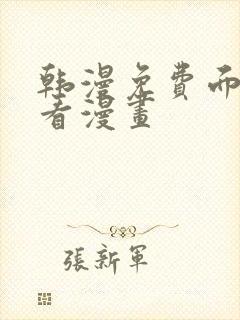 韩漫免费而
看漫畫
張新軍